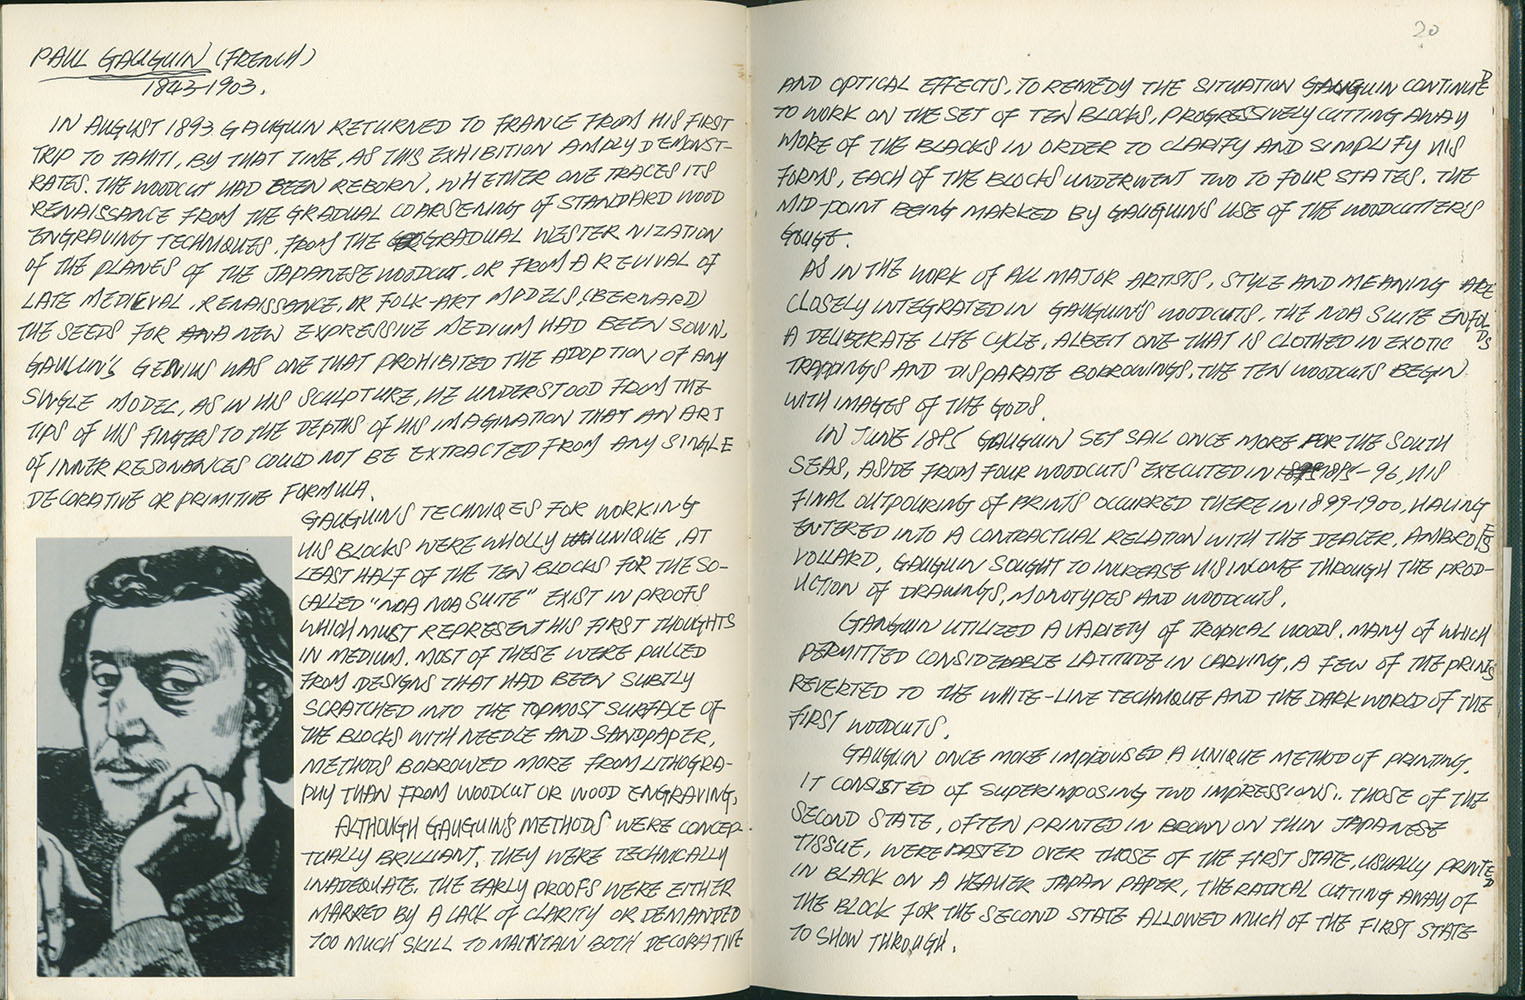 PAUL GAUGUIN (FRENCH)
1843-1903.
IN AUGUST 1893 GAUGUIN RETURNED TO FRANCE FROM HIS FIRST
TRIP TO TAHITI, BY THAT TIME, AS THIS EXHIBITION AMPLY DEMONST-
RATES. THE WOODCUT HAD BEEN REBORN. WHETHER ONE TRACES ITS
RENAISSANCE FROM THE GRADUAL COARSENING OF STANDARD WOOD
ENGRAVING TECHNIQUES. FROM THE GRADUAL WESTERNIZATION
OF THE PLANES OF THE JAPANESE WOODCUT. OR FROM A REVIVAL OF
LATE MEDIEVAL, RENAISSANCE, OR FOLK-ART MODELS, (BERNARD)
THE SEEDS FOR A NEW EXPRESSIVE MEDIUM HAD BEEN SOWN.
GAUGUIN'S GENIUS WAS ONE THAT PROHIBITED THE ADOPTION OF ANY
SINGLE MODEL, AS IN HIS SCULPTURE, HE UNDERSTOOD FROM THE
TIPS OF HIS FINGERS TO THE DEPTHS OF HIS IMAGINATION THAT AN ART
OF INNER RESONANCES COULD NOT BE EXTRACTED FROM ANY SINGLE
DECORATIVE OR PRIMITIVE FORMULA.
GAUGUIN'S TECHNIQES FOR WORKING
HIS BLOCKS WERE WHOLLY UNIQUE, AT
LEAST HALF OF THE TEN BLOCKS FOR THE SO-
CALLED "NOA NOA SUITE" EXIST IN PROOFS
WHICH MUST REPRESENT HIS FIRST THOUGHTS
IN MEDIUM. MOST OF THESE WERE PULLED
FROM DESIGNS THAT HAD BEEN SUBTLY
SCRATCHED INTO THE TOPMOST SURFACE OF
THE BLOCKS WITH NEEDLE AND SANDPAPER,
METHODS BORROWED MORE FROM LITHOGRA-
PHY THAN FROM WOODCUT OR WOOD ENGRAVING,
ALTHOUGH GAUGUIN'S METHODS WERE CONCEP-
TUALLY BRILLIANT, THEY WERE TECHNICALLY
INADEQUATE. THE EARLY PROOFS WERE EITHER
MARRED BY A LACK OF CLARITY OR DEMANDED
TOO MUCH SKILL TO MAINTAIN BOTH DECORATIVE
20
AND OPTICAL EFFECTS, TO REMEDY THE SITUATION GAUGUIN CONTINUED
TO WORK ON THE SET OF TEN BLOCKS, PROGRESSIVELY CUTTING AWAY
MORE OF THE BLACKS IN ORDER TO CLARIFY AND SIMPLIFY HIS
FORMS, EACH OF THE BLOCKS UNDERWENT TWO TO FOUR STATES. THE
MID-POINT BEING MARKED BY GAUGUIN'S USE OF THE WOODCUTTERS
GOUGE.
AS IN THE WORK OF ALL MAJOR ARTISTS, STYLE AND MEANING ARE
CLOSELY INTEGRATED IN GAUGUIN'S WOODCUTS, THE NOA SUITE ENFOLDS
A DELIBERATE LIFE CYCLE, ALBEIT ONE THAT IS CLOTHED IN EXOTIC
TRAPPINGS AND DISPARATE BORROWINGS, THE TEN WOODCUTS BEGIN
WITH IMAGES OF THE GODS.
IN JUNE 1895 GAUGUIN SET SAIL ONCE MORE FOR THE SOUTH
SEAS, ASIDE FROM FOUR WOODCUTS EXECUTED IN 1895-96, HIS
FINAL OUTPOURING OF PRINTS OCCURRED THERE IN 1899-1900, HAVING
ENTERED INTO A CONTRACTUAL RELATION WITH THE DEALER, AMBROISE
VOLLARD, GAUGUIN SOUGHT TO INCREASE HIS INCOME THROUGH THE PROD-
UCTION OF DRAWINGS, MONOTYPES AND WOODCUTS.
GAUGUIN UTILIZED A VARIETY OF TROPICAL WOODS. MANY OF WHICH
PERMITTED CONSIDERABLE LATITUDE IN CARVING, A FEW OF THE PRINTS
REVERTED TO THE WHITE-LINE TECHNIQUE AND THE DARK WORLD OF THE
FIRST WOODCUTS.
GAUGUIN ONCE MORE IMPROVISED A UNIQUE METHOD OF PRINTING.
IT CONSISTED OF SUPERIMPOSING TWO IMPRESSIONS.. THOSE OF THE
SECOND STATE, OFTEN PRINTED IN BROWN ON THIN JAPANESE
TISSUE, WERE PASTED OVER THOSE OF THE FIRST STATE, USUALLY PRINTED
IN BLACK ON A HEAVIER JAPAN PAPER, THE RADICAL CUTTING AWAY OF
THE BLOCK FOR THE SECOND STATE ALLOWED MUCH OF THE FIRST STATE
TO SHOW THROUGH.